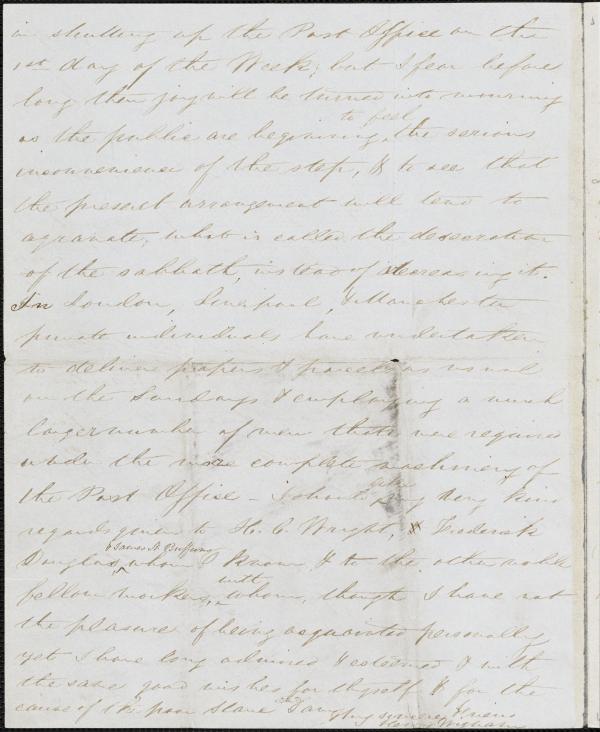 in shutting up the Post Office on the
1st day of the Week; but I fear before
long their joy will be turned into mourning
as the public are beginning to feel the serious
inconvenience of the step, & to see that
the present arrangement will tend to
agravate, what is called the desecration
of the sabbath, instead of decreasing it.
In London, Liverpool, & Manchester
private individuals have undertaken
to deliver papers & parcels as usual
on the Sundays & employing a much
larger number of men than were required
under the more complete machinery of
the Post Office - I should like my very kind
regards given to H. C. Wright, Frederick
Douglas, & James N. Buffum whom I know, & to the other noble
fellow workers, with whom, though I have not
the pleasure of being acquainted personally,
yet I have long admired & esteemed & with
the same good wishes for thyself & for the
cause of the poor Slave I am
thy sincere friend